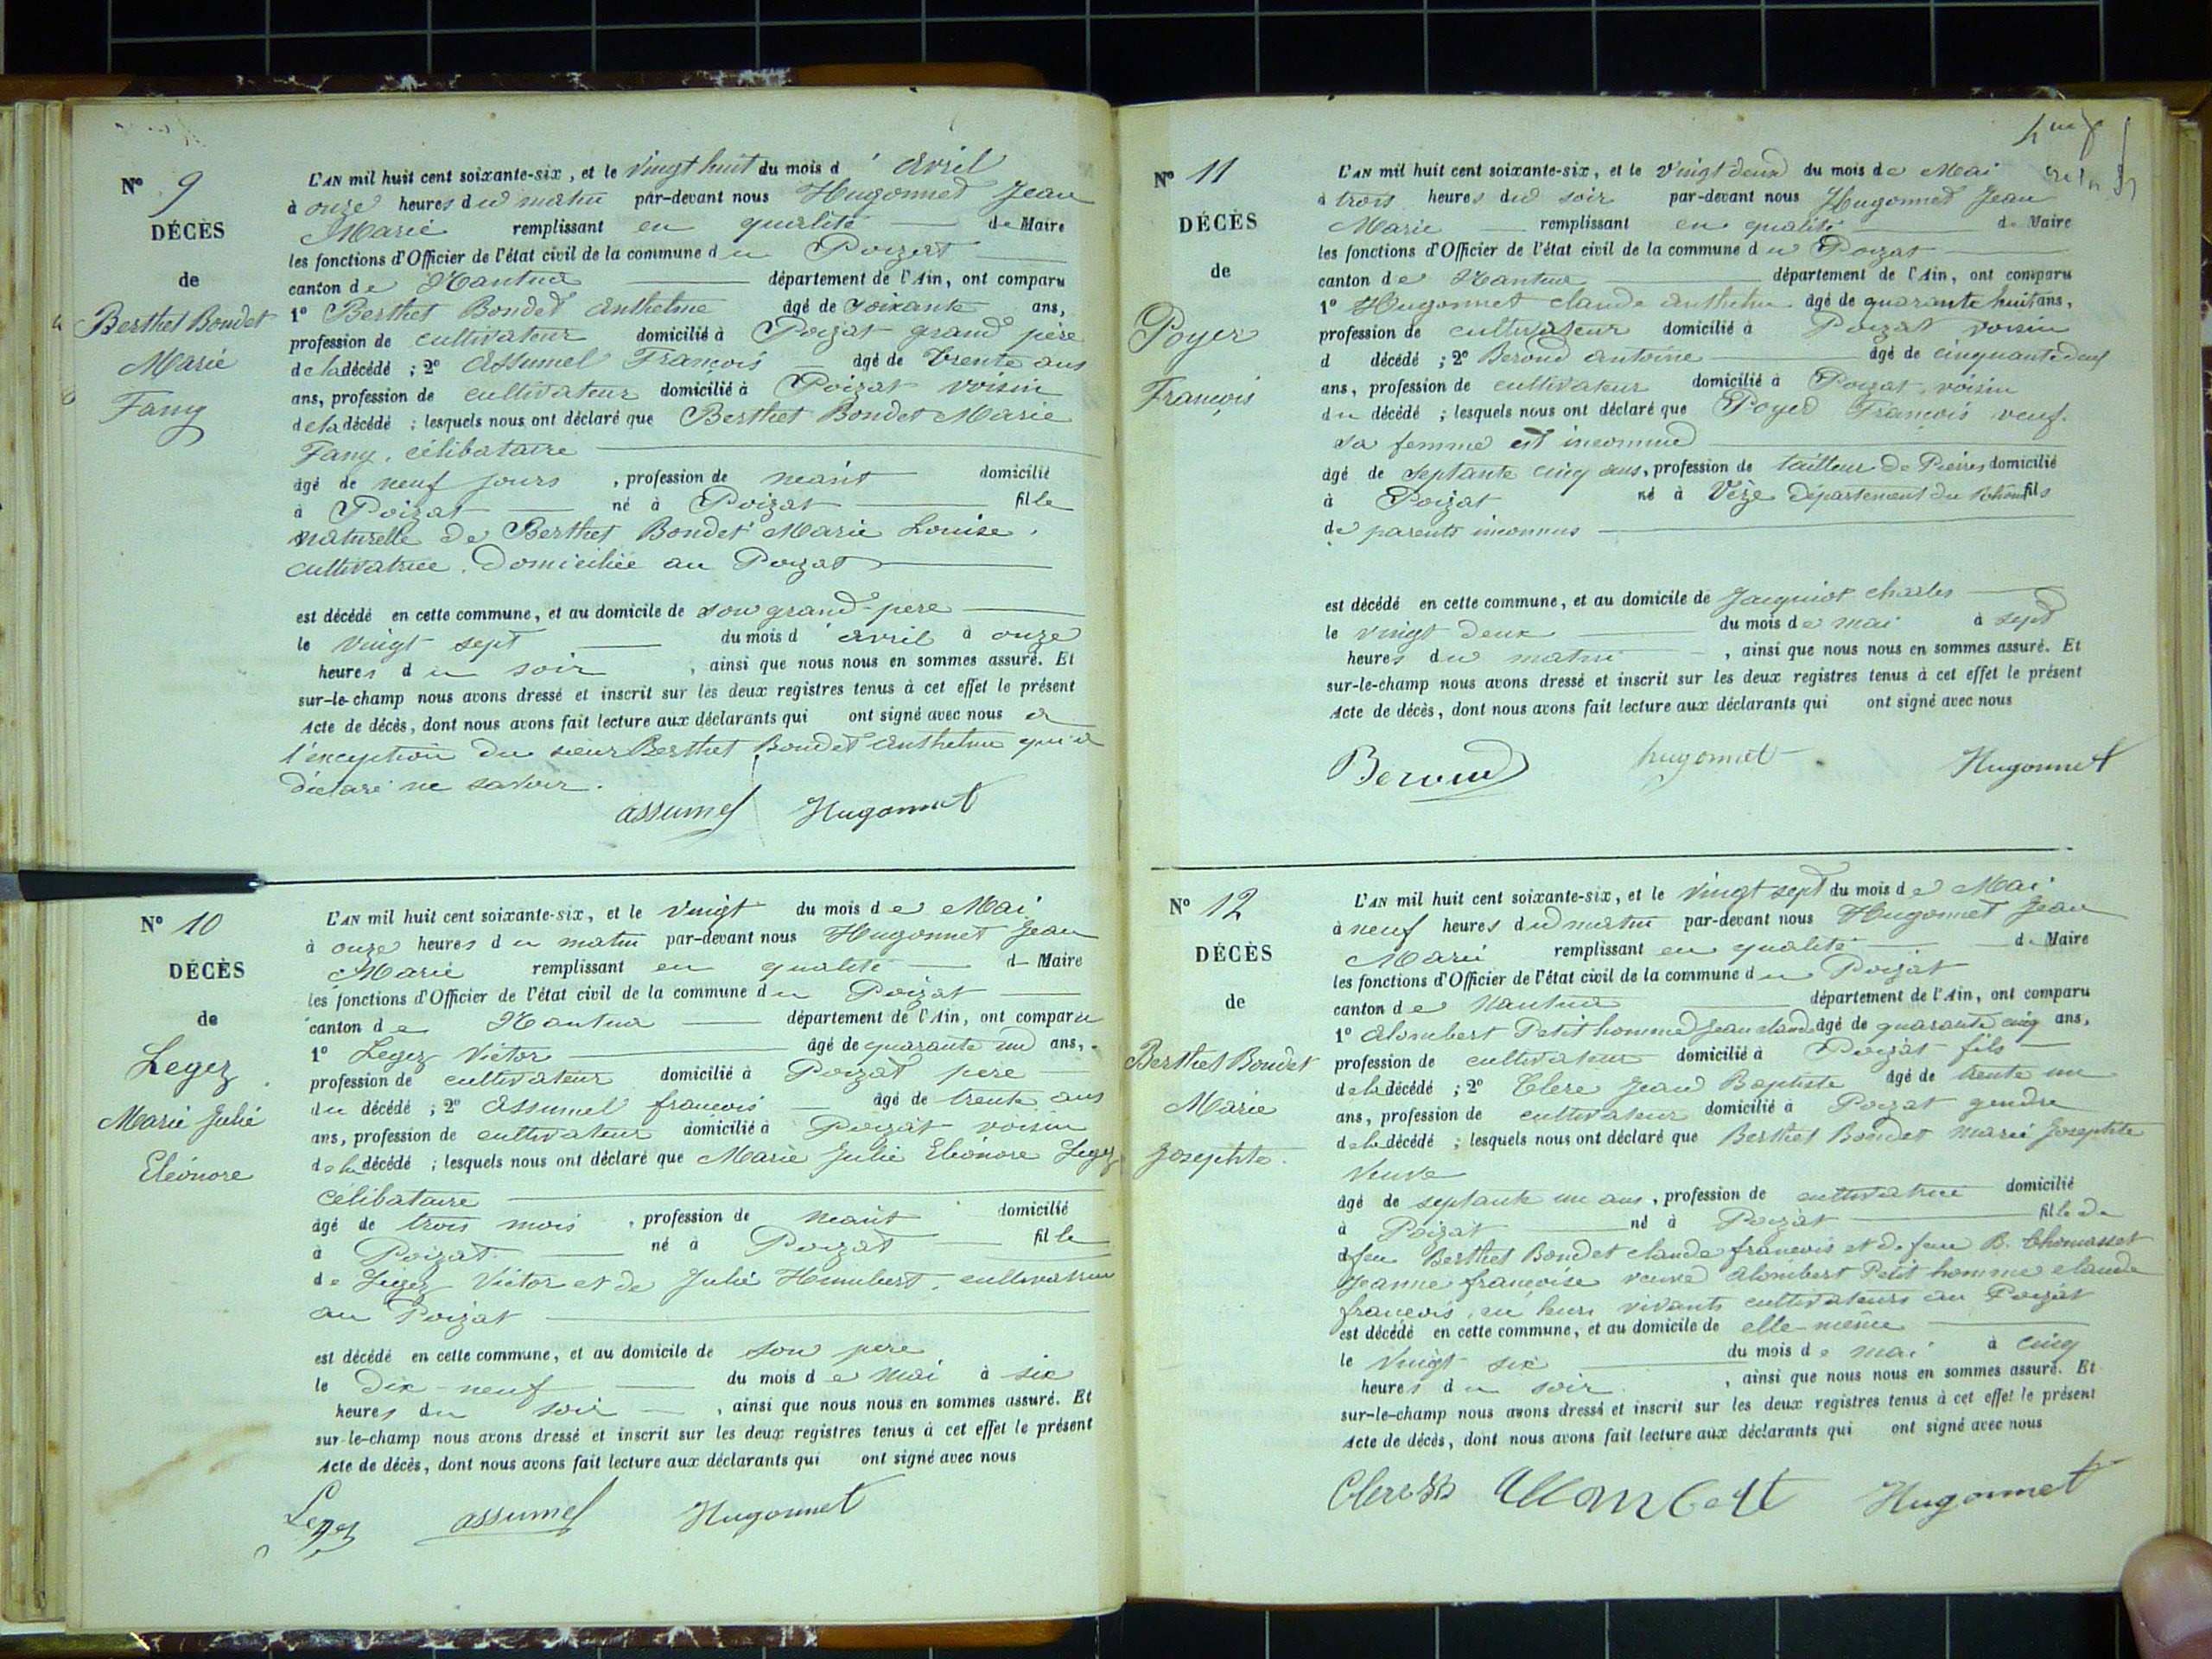 N° 9
DÉCÈS
de
Berthet Bondet
Marie
Fany
L'AN mil huit cent soixante-six, et le vingt huit du mois d'avril
à onze heures du matin par-devant nous Hugonnet Jean
Marie remplissant en qualité de Maire
les fonctions d'Officier de l'état civil de la commune du Poizat
canton de Nantua département de l'Ain, ont comparu
1° Berthet Bondet Anthelme âgé de soixante ans,
profession de cultivateur domicilié à Poizat grand père
de la décédé ; 2° Assumel François âgé de trente ans
ans, profession de cultivateur domicilié à Poizat voisin
de la décédé ; lesquels nous ont déclaré que Berthet Bondet Marie
Fany. célibataire
âgé de neuf jours, profession de néant domicilié
à Poizat né à Poizat fille
naturelle de Berthet Bondet Marie Louise.
cultivatrice. Domiciliée au Poizat
est décédé en cette commune, et au domicile de son grand-père
le vingt sept du mois d'avril à onze
heures du soir, ainsi que nous nous en sommes assuré. Et
sur-le-champ nous avons dressé et inscrit sur les deux registres tenus à cet effet le présent
Acte de décès, dont nous avons fait lecture aux déclarants qui ont signé avec nous à
l'exception du sieur Berthet Bondet Anthelme qui a
déclaré ne savoir.
assumel Hugonnet
N° 10
DÉCÈS
de
Legez
Marie Julie
Eléonore
L'AN mil huit cent soixante-six, et le vingt du mois de Mai
à onze heures du matin par-devant nous Hugonnet Jean
Marie remplissant en qualité d Maire
les fonctions d'Officier de l'état civil de la commune du Poizat
canton de Nantua département de l'Ain, ont comparu
1° Legez Victor âgé de quarante un ans,
profession de cultivateur domicilié à Poizat père
du décédé ; 2° Assumel françois âgé de trente ans
ans, profession de cultivateur domicilié à Poizat voisin
de la décédé ; lesquels nous ont déclaré que Marie Julie Eléonore Legez
célibataire
âgé de trois mois, profession de néant domicilié
à Poizat né à Poizat fille
de Legez Victor et de Julie Humbert, cultivateurs
au Poizat
est décédé en cette commune, et au domicile de son père
le dix-neuf du mois de mai à six
heures du soir, ainsi que nous nous en sommes assuré. Et
sur-le-champ nous avons dressé et inscrit sur les deux registres tenus à cet effet le présent
Acte de décès, dont nous avons fait lecture aux déclarants qui ont signé avec nous
Legez assumel Hugonnet
N° 11
DÉCÈS
de
Poyer
François
L'AN mil huit cent soixante-six, et le vingt deux du mois de Mai
à trois heures du soir par-devant nous Hugonnet Jean
Marie remplissant en qualité de Maire
les fonctions d'Officier de l'état civil de la commune du Poizat
canton de Nantua département de l'Ain, ont comparu
1° Hugonnet claude anthelme âgé de quarante huit ans,
profession de cultivateur domicilié à Poizat voisin
d décédé ; 2° Beroud antoine âgé de cinquante deux
ans, profession de cultivateur domicilié à Poizat, voisin
du décédé ; lesquels nous ont déclaré que Poyer François veuf.
sa femme est inconnue
âgé de septante cinq ans, profession de tailleur de Pierres domicilié
à Poizat né à Vèze département du Rhône fils
de parents inconnus
est décédé en cette commune, et au domicile de Jacquiot charles
le vingt deux du mois de mai à sept
heures du matin, ainsi que nous nous en sommes assuré. Et
sur-le-champ nous avons dressé et inscrit sur les deux registres tenus à cet effet le présent
Acte de décès, dont nous avons fait lecture aux déclarants qui ont signé avec nous
Beroud hugonnet Hugonnet
N° 12
DÉCÈS
de
Berthet Bondet
Marie
Josephte.
L'AN mil huit cent soixante-six, et le vingt sept du mois de Mai
à neuf heures du matin par-devant nous Hugonnet Jean
Marie remplissant en qualité de Maire
les fonctions d'Officier de l'état civil de la commune du Poizat
canton de Nantua département de l'Ain, ont comparu
1° Alombert Petit homme Jean claude âgé de quarante cinq ans,
profession de cultivateur domicilié à Poizat fils
de la décédé ; 2° Clerc Jean Baptiste âgé de trente un
ans, profession de cultivateur domicilié à Poizat gendre
de la décédé ; lesquels nous ont déclaré que Berthet Bondet marie Josephte
veuve
âgé de septante un ans, profession de cultivatrice domicilié
à Poizat né à Poizat fille de
d feu Berthet Bondet claude françois et de feue B. Chomasset
Jeanne françoise veuve alombert Petit homme claude
françois, en leurs vivants cultivateurs au Poizat
est décédé en cette commune, et au domicile de elle-même
le vingt six du mois de mai à cinq
heures du soir, ainsi que nous nous en sommes assuré. Et
sur-le-champ nous avons dressé et inscrit sur les deux registres tenus à cet effet le présent
Acte de décès, dont nous avons fait lecture aux déclarants qui ont signé avec nous
Clerc Allombert Hugonnet